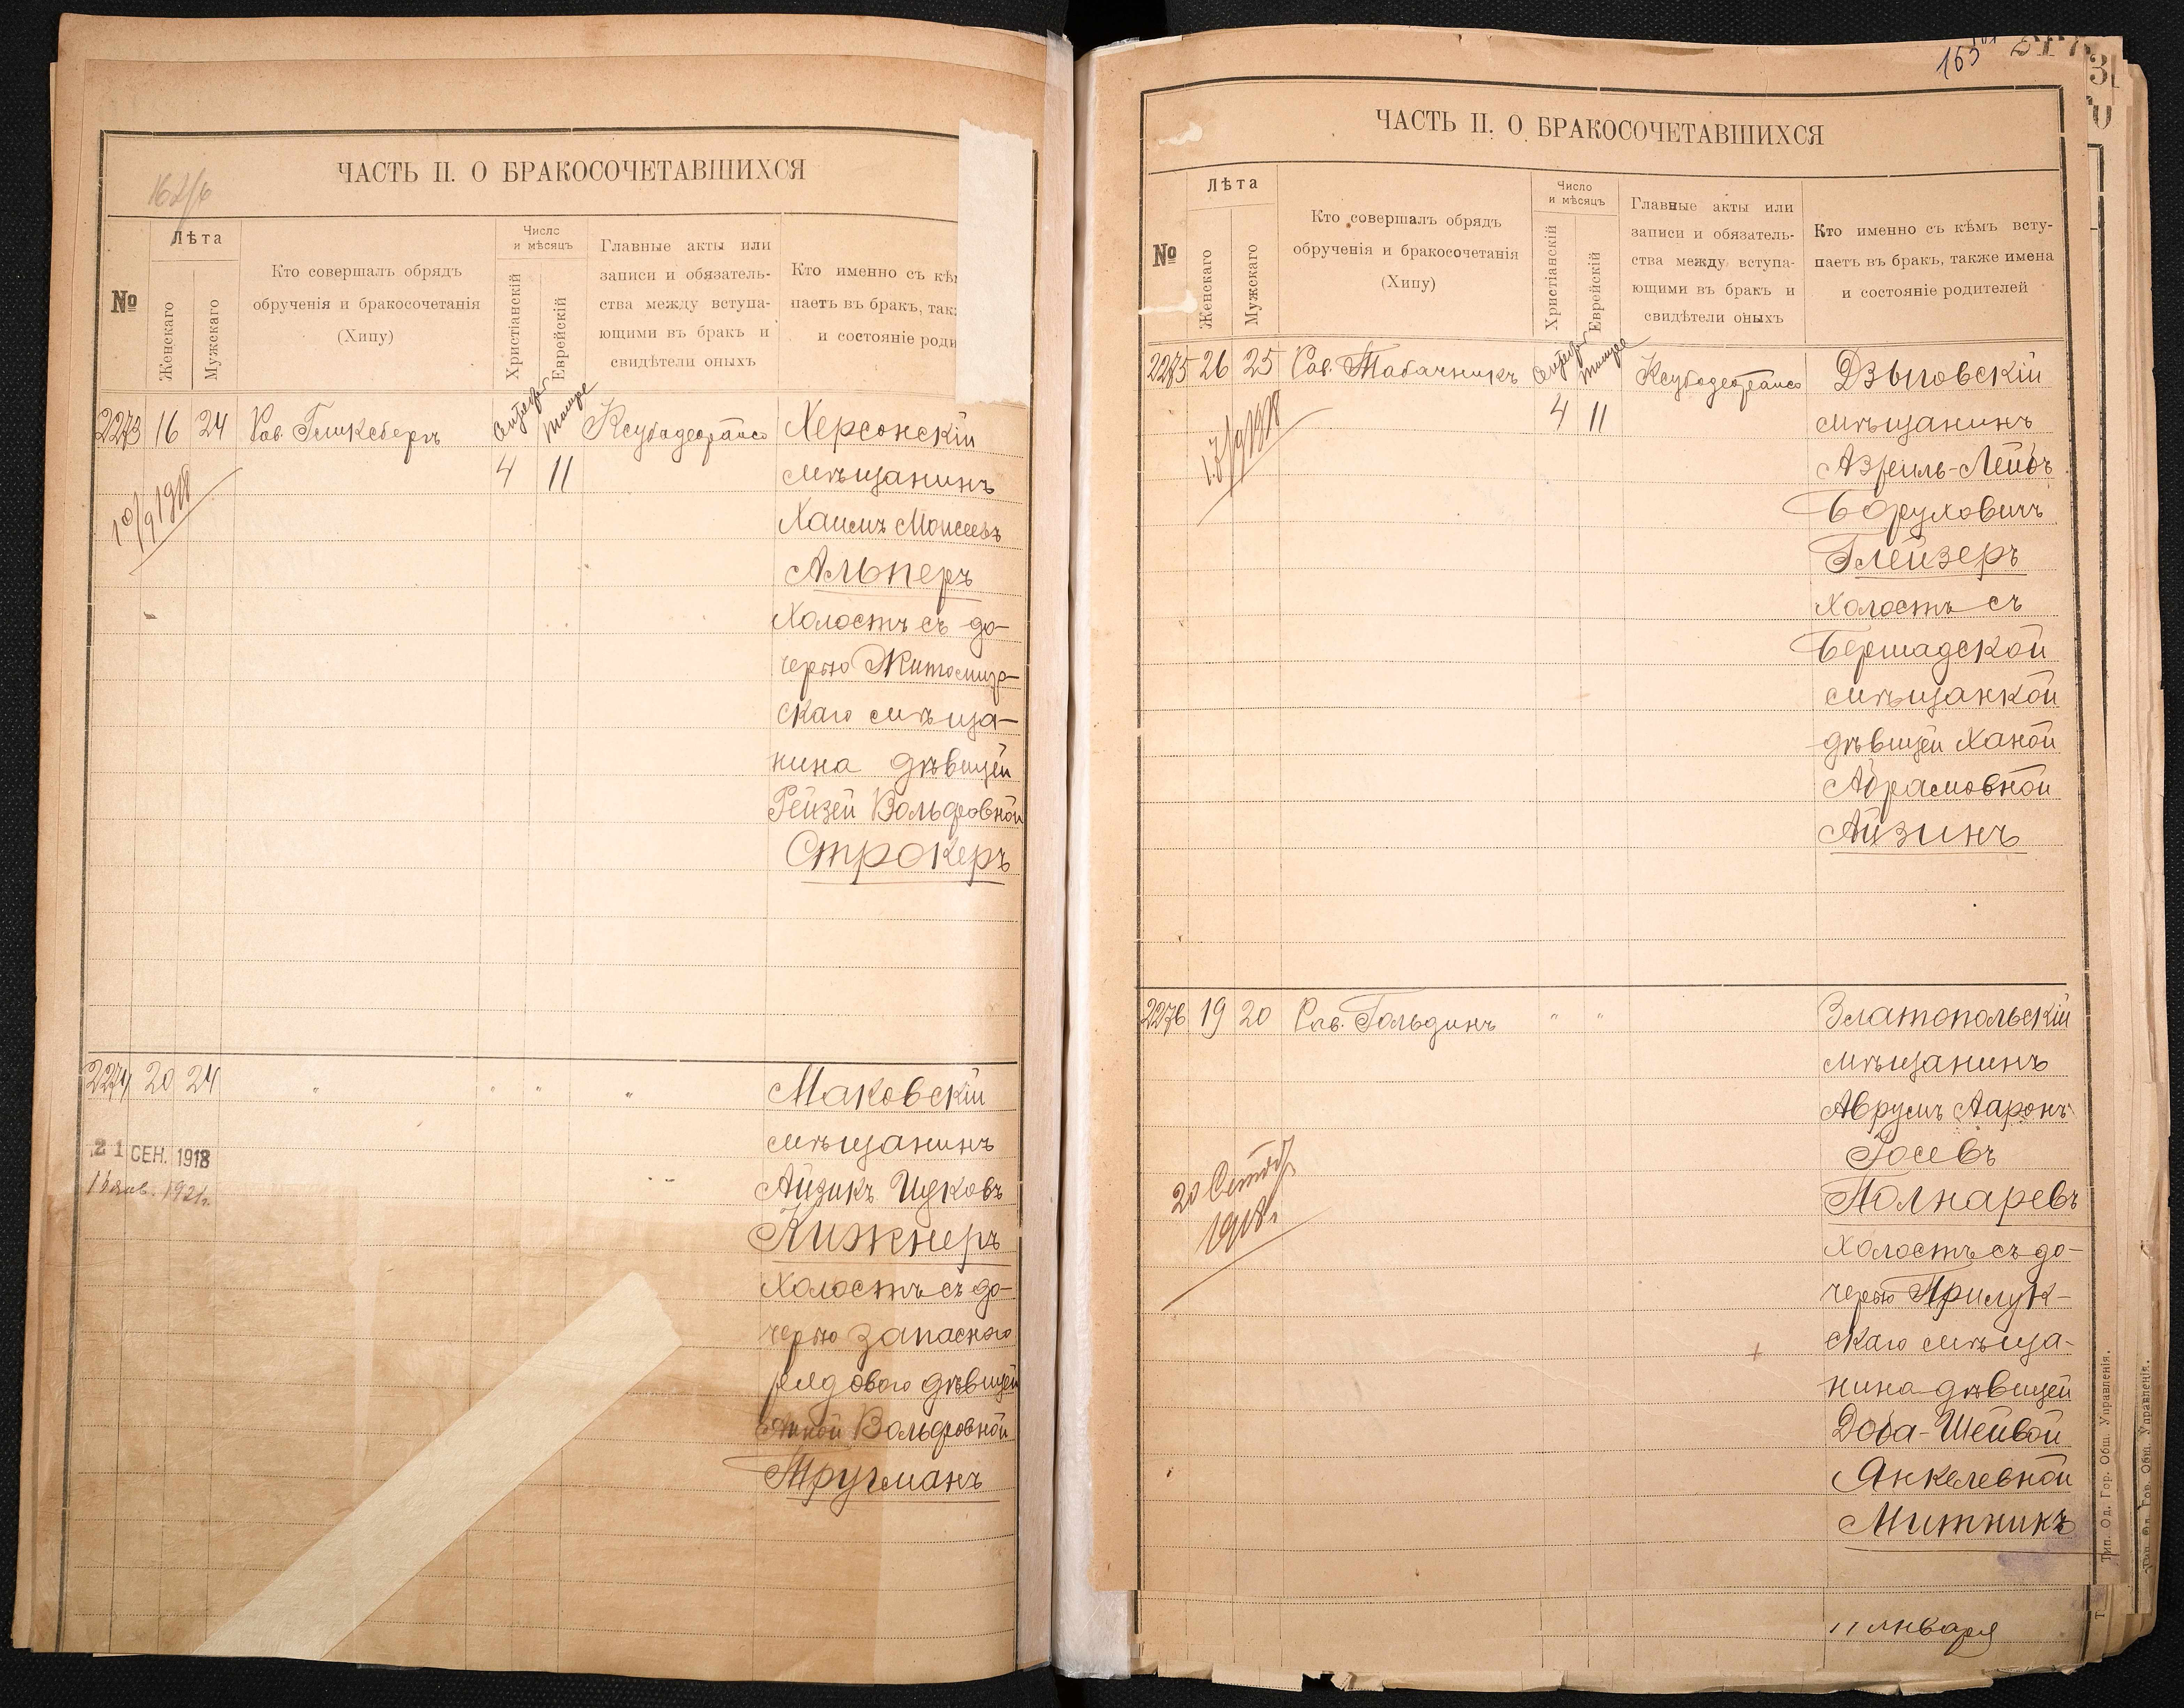 162/б
ЧАСТЬ II. О БРАКОСОЧЕТАВШИХСЯ
№
Лѣта
Женскаго
Мужскаго
Кто совершалъ обрядъ
обрученія и бракосочетанія
(Хипу)
Число
и мѣсяцъ
Христіанскій
Еврейскій
Главные акты или
записи и обязатель-
ства между вступа-
ющими въ бракъ и
свидѣтели оныхъ
Кто именно съ кѣ
паетъ въ бракъ, так
и состояніе роди
2273 16 24 Рав. Гликсбергъ
4 11
Херсонскій
мѣщанинъ
Хаимъ Моисеевъ
Альперъ
Холостъ съ до-
черью Житомир-
скаго мѣща-
нина дѣвицей
Рейзей Вольфовной
Строкеръ
10/9 1918
2274 20 24 " " " "
21 СЕН. 1918
1921г.
Маковскій
мѣщанинъ
Айзикъ Ицковъ
Кижнеръ
Холостъ съ до-
черью запаснаго
рядового дѣвицей
Вольфовной
Тругманъ
163
ЧАСТЬ II. О БРАКОСОЧЕТАВШИХСЯ
№
Лѣта
Женскаго
Мужскаго
Кто совершалъ обрядъ
обрученія и бракосочетанія
(Хипу)
Число
и мѣсяцъ
Христіанскій
Еврейскій
Главные акты или
записи и обязатель-
ства между вступа-
ющими въ бракъ и
свидѣтели оныхъ
Кто именно съ кѣмъ всту-
паетъ въ бракъ, также имена
и состояніе родителей
2275 26 25 Рав. Табачникъ
4 11
17/9 1918
Дзыговскій
мѣщанинъ
Азріиль-Лейбъ
Боруховичъ
Глейзеръ
Холостъ съ
Бершадской
мѣщанкой
дѣвицей Ханой
Абрамовной
Айзинъ
2276 19 20 Рав. Гольдинъ " "
1918г.
Златопольскій
мѣщанинъ
Аврумъ Ааронъ
Іосевъ
Полнаревъ
Холостъ съ до-
черью Прилук-
скаго мѣща-
нина дѣвицей
Доба-Шейвой
Янкелевной
Митникъ
11 января
Тип. Од. Гор. Общ. Управленія.
Тип. Од. Гор. Общ. Управленія.